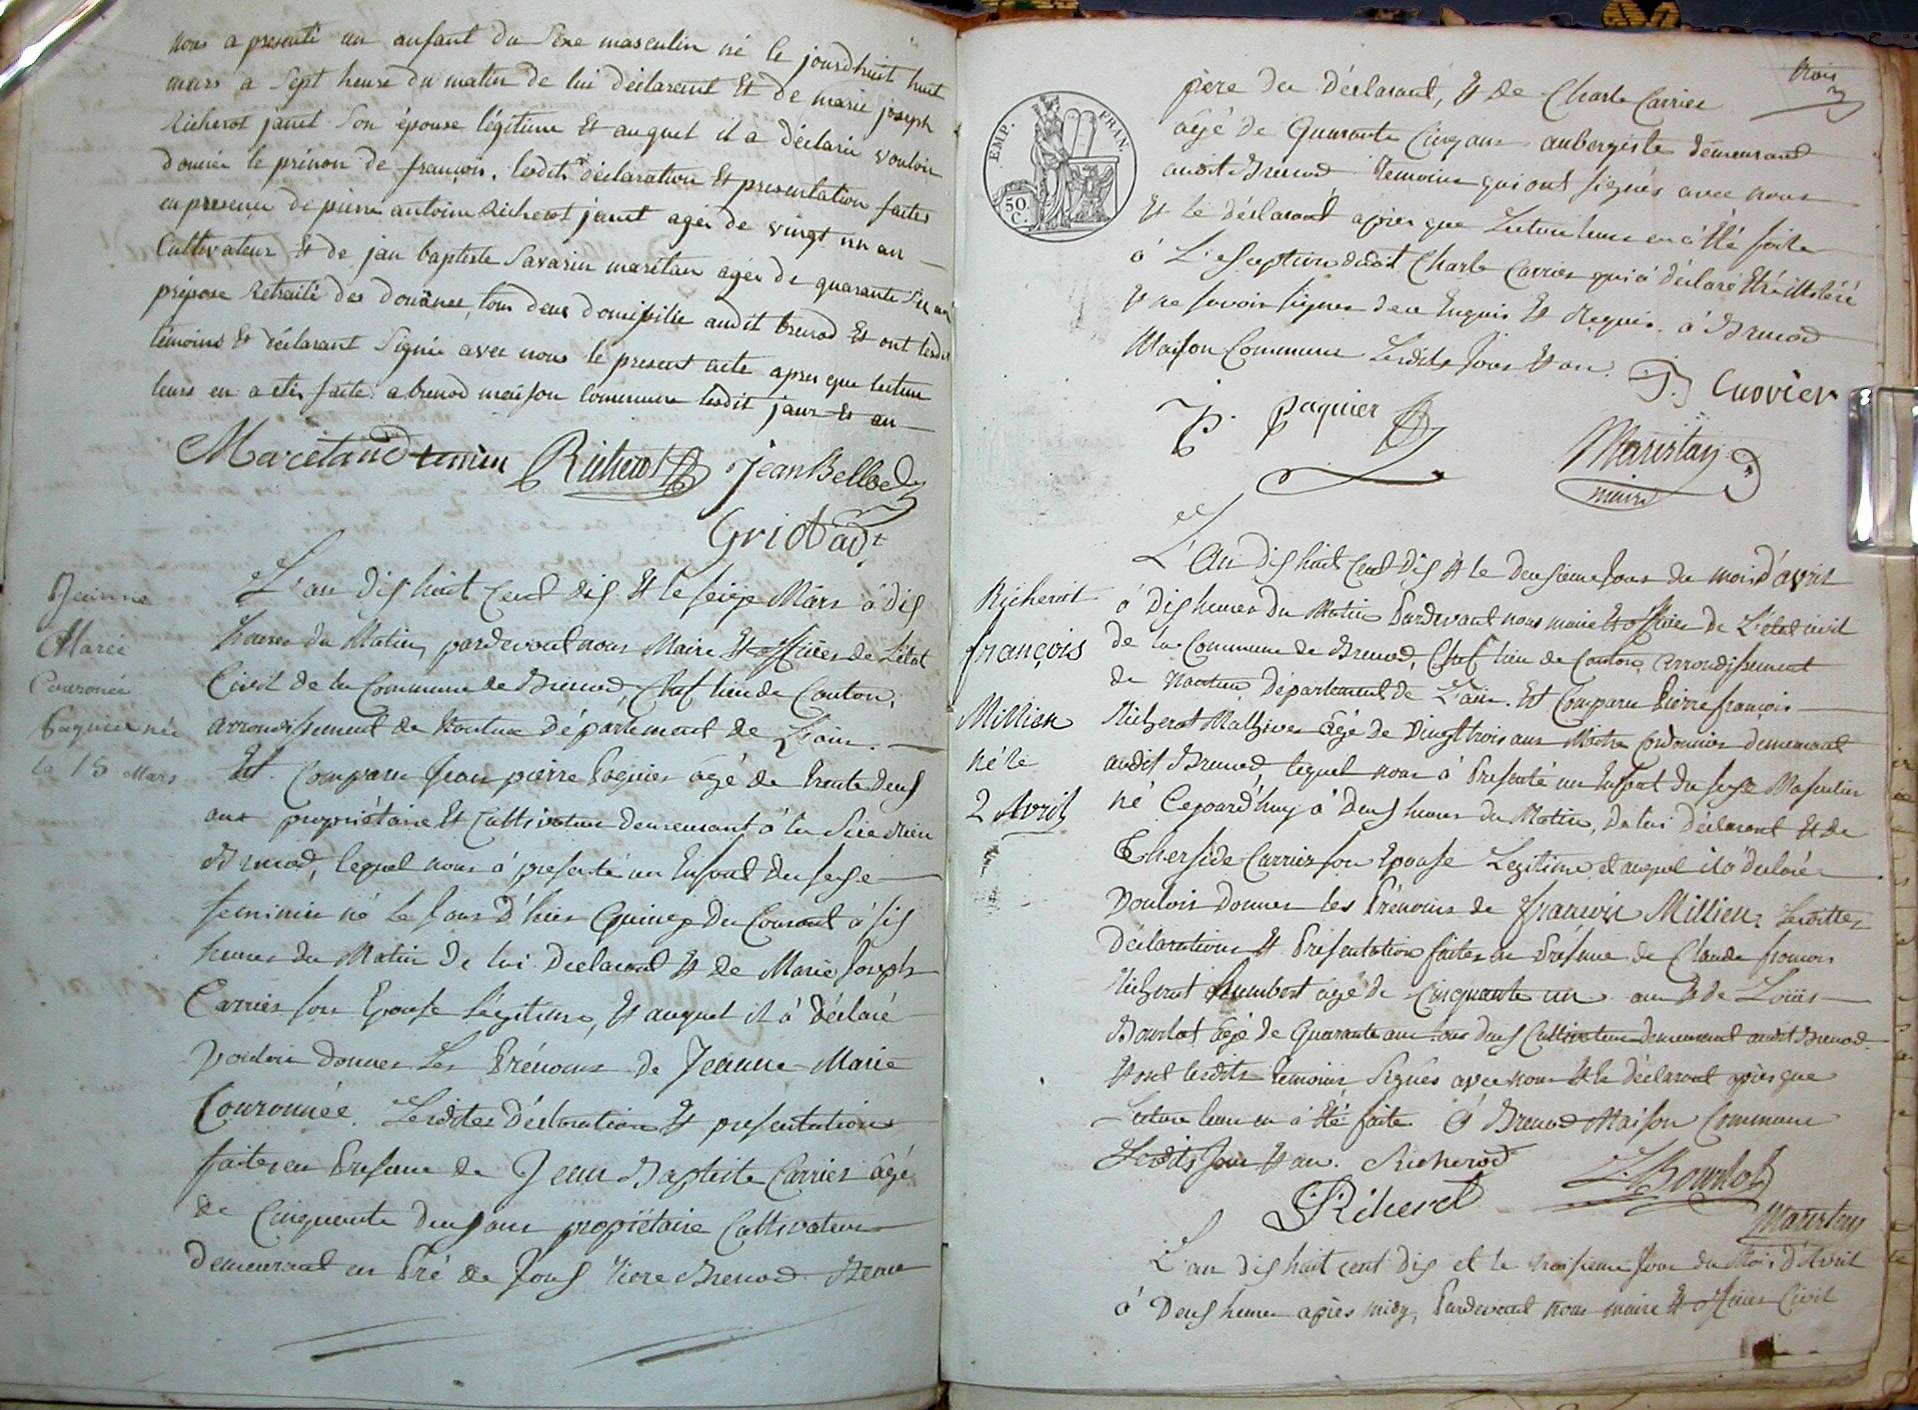 nous a presenté un anfant du Sexe masculin né le jourdhuit huit
mars a Sept heure du matin de lui déclarant Et de marie joseph
Richerot janet Son épouse légitime Et auquel il a déclaré vouloir
donner le prénon de françois. lesdits déclaration Et presentation faites
en presence de pierre antoine Richerot janet agée de vingt un an
Cultivateur Et de jan baptiste Savarin maretan agée de quarante Six an
prépose Retraité des Douänes, tous deux domicilie audit brenod Et ont lesdit
témoins Et déclarant Signée avec nous le present acte apres que lecture
leurs en a etée faite. a brenod maison commune lesdit jour Et an
Maretand temin Richerot Jean Belloed
Griotad
Jeanne
Marie
Couronée
Paquier née
le 15 Mars
L'an dix huit Cent dix Et le seize Mars à dix
heures du Matin, pardevant nous Maire Et officier de L'état
Civil de la Commune de Brenod, Chef lieu de Canton,
arrondissement de Nantua Département de L'ain.
Est Comparu Jean pierre Paquier âgé de trente deux
ans propriétaire Et Cultivateur demeurant à la
Brenod, lequel nous à presenté un Enfant du sexe
feminin né Le Jour D'hier Quinze du Courant à six
heures du Matin De lui Declarant Et de Marie Joseph
Carrier son Epouse Légitime, Et auquel il à déclaré
Vouloir donner Les Prénoms de Jeanne-Marie
Couronnée. Lesdites Déclaration Et presentation
faites en Presence de Jean Baptiste Carrier âgé
de Cinquante deux ans propriétaire Cultivateur
demeurant en Pré de Joux Brenod Beau
trois
père du Déclarant, Et de Charle Carrier
âgé de Quarante Cinq ans aubergiste demeurant
audit Brenod Temoins qui ont signés avec nous
Et le déclarant après que Lecture leur en à été faite
à L'exception dudit Charle Carrier qui à déclaré Etre illitéré
Et ne savoir signer de ce Enquis Et Requis. à Brenod
Maison Commune Lesdits Jour Et an.
EMP. FRAN.
50. C.
J. Cuovier
J. P. paquier
Maretan
maire
Richerot
françois
Millien
né le
2 Avril
L'An dix huit Cent Dix Et le Deuxieme Jour du mois d'avril
à Dix heures du Matin Pardevant nous maire Et officier de L'état civil
de la Commune de Brenod, Chef lieu de Canton, arrondissement
de Nantua Département de L'ain. Est Comparu Pierre françois
Richerot Mathieu âgé de Vingt trois ans Maitre Cordonnier demeurant
audit Brenod lequel nous à Presenté un Enfant du sexe Masculin
né Cejourd'huy à Deux heures du Matin, De lui Déclarant Et de
Carrier son Epouse Legitime et auquel il à déclaré
Vouloir Donner les Prénoms de François Millien, Lesdittes
déclarations Et Présentation faites en Présence de Claude françois
Richerot humbert âgé de Cinquante un ans Et de Louis
Bourlot âgé de Quarante ans tous deux Cultivateurs demeurant audit Brenod.
Et ont lesdits temoins Signés avec nous Et le déclarant après que
Lecture leur en à été faite à Brenod Maison Commune
Lesdits Jour Et an. Richerod L. Bourlot
Richerot Maretan
L'an dix huit cent dix et le troisieme Jour du Mois d'Avril
à Deux heures après midy, Pardevant nous maire Et officier Civil